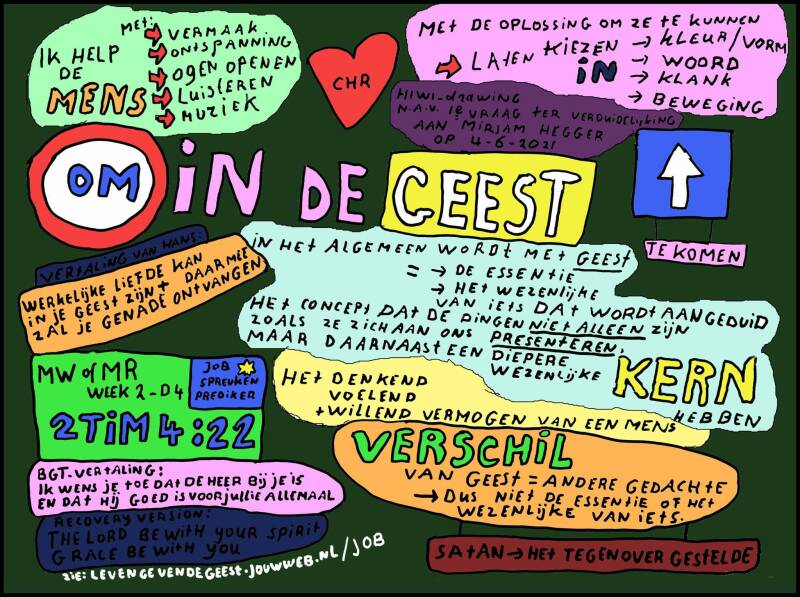 IK HELP
DE
MENS
MET:
VERMAAK
ONTSPANNING
OGEN OPENEN
LUISTEREN
MUZIEK
CHR
MET DE OPLOSSING OM ZE TE KUNNEN
LATEN KIEZEN
IN
KLEUR/VORM
WOORD
KLANK
BEWEGING
HIWI-DRAWING
N.A.V. 1e VRAAG TER VERDUIDELIJKING
AAN MIRJAM HEGGER
OP 4-6-2021
OM IN DE GEEST
TE KOMEN
VERTALING VAN HANS:
WERKELIJKE LIEFDE KAN
IN JE GEEST ZIJN + DAARMEE
ZAL JE GENADE ONTVANGEN
IN HET ALGEMEEN WORDT MET GEEST
= → DE ESSENTIE
→ HET WEZENLIJKE
VAN IETS DAT WORDT AANGEDUID
HET CONCEPT DAT DE DINGEN NIET ALLEEN ZIJN
ZOALS ZE ZICH AAN ONS PRESENTEREN,
MAAR DAARNAAST EEN DIEPERE
WEZENLIJKE KERN
HEBBEN
MW of MR
WEEK 2-D4
JOB
SPREUKEN
PREDIKER
2 TIM 4:22
HET DENKEND
VOELEND
+ WILLEND VERMOGEN VAN EEN MENS
VERSCHIL
VAN GEEST = ANDERE GEDACHTE
→ DUS NIET DE ESSENTIE OF HET
WEZENLIJKE VAN IETS.
BGT-VERTALING:
IK WENS JE TOE DAT DE HEER BIJ JE IS
EN DAT HIJ GOED IS VOOR JULLIE ALLEMAAL
RECOVERY VERSION:
THE LORD BE WITH YOUR SPIRIT
GRACE BE WITH YOU
ZIE: LEVENGEVENDEGEEST.JOUWWEB.NL/JOB
SATAN → HET TEGENOVER GESTELDE